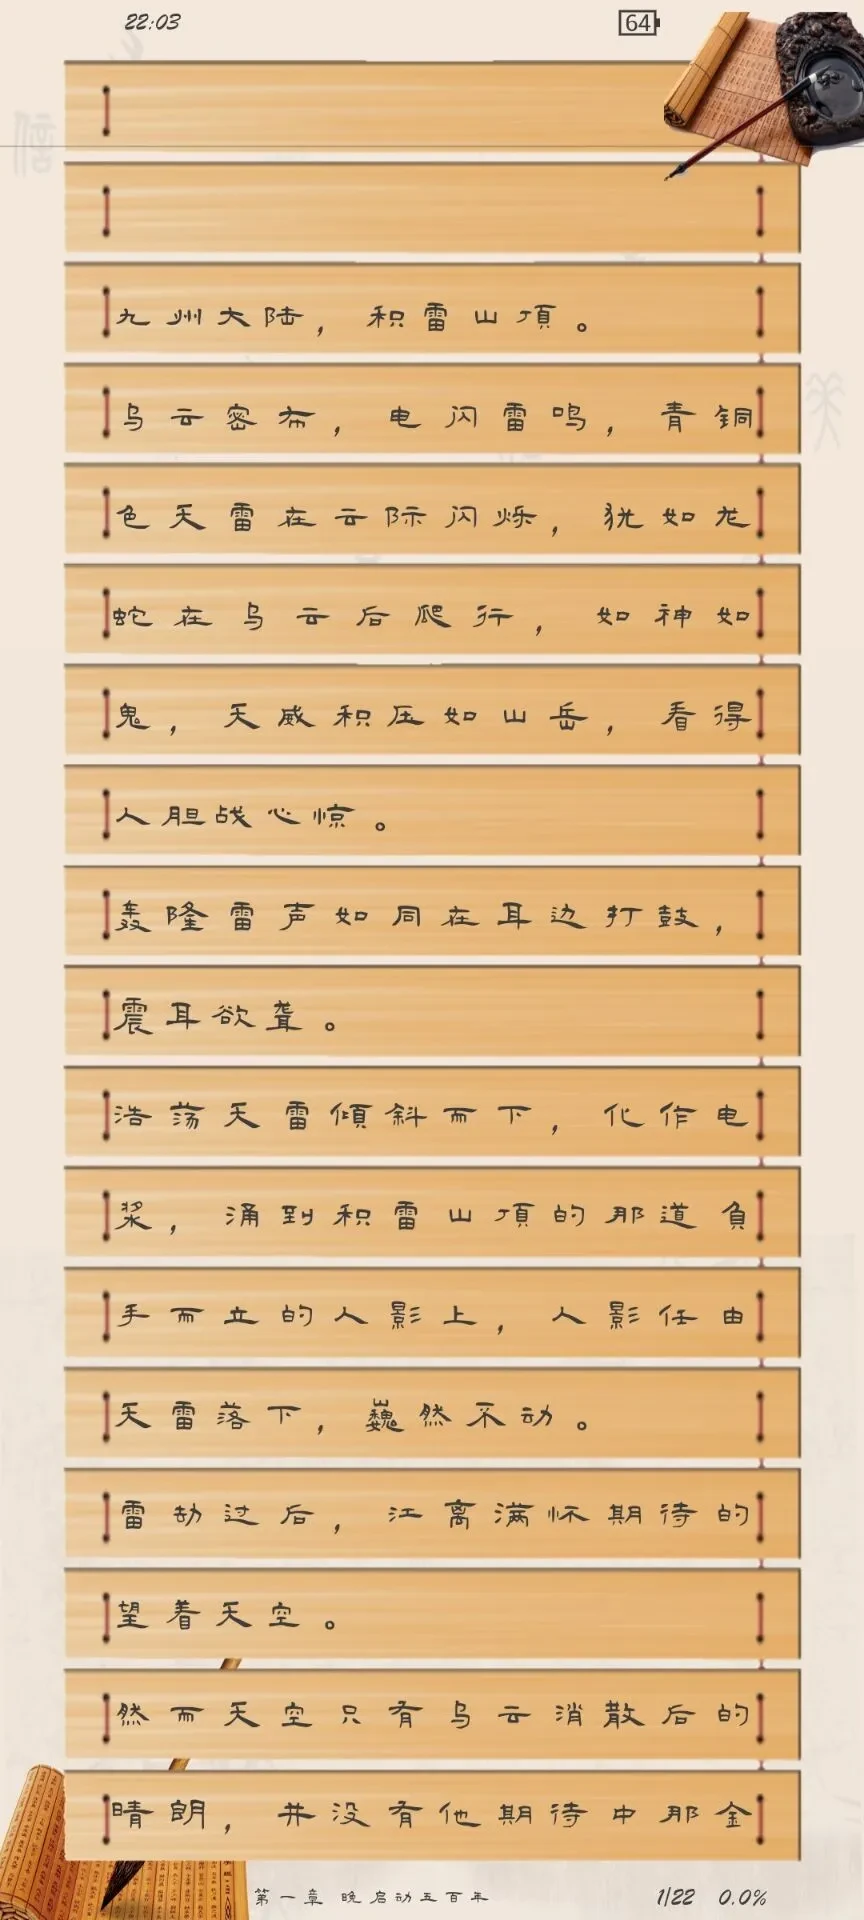 22:03
64
九州大陆，积雷山頂。
乌云密布，电闪雷鸣，青铜
色天雷在云际闪烁，犹如龙
蛇在乌云后爬行，如神如
鬼，天威积压如山岳，看得
人胆战心惊。
轰隆雷声如同在耳边打鼓，
震耳欲聋。
浩荡天雷傾斜而下，化作电
浆，涌到积雷山頂的那道負
手而立的人影上，人影任由
天雷落下，巍然不动。
雷劫过后，江离满怀期待的
望着天空。
然而天空只有乌云消散后的
晴朗，并没有他期待中那金
第一章 晚启动五百年
1/22 0.0%